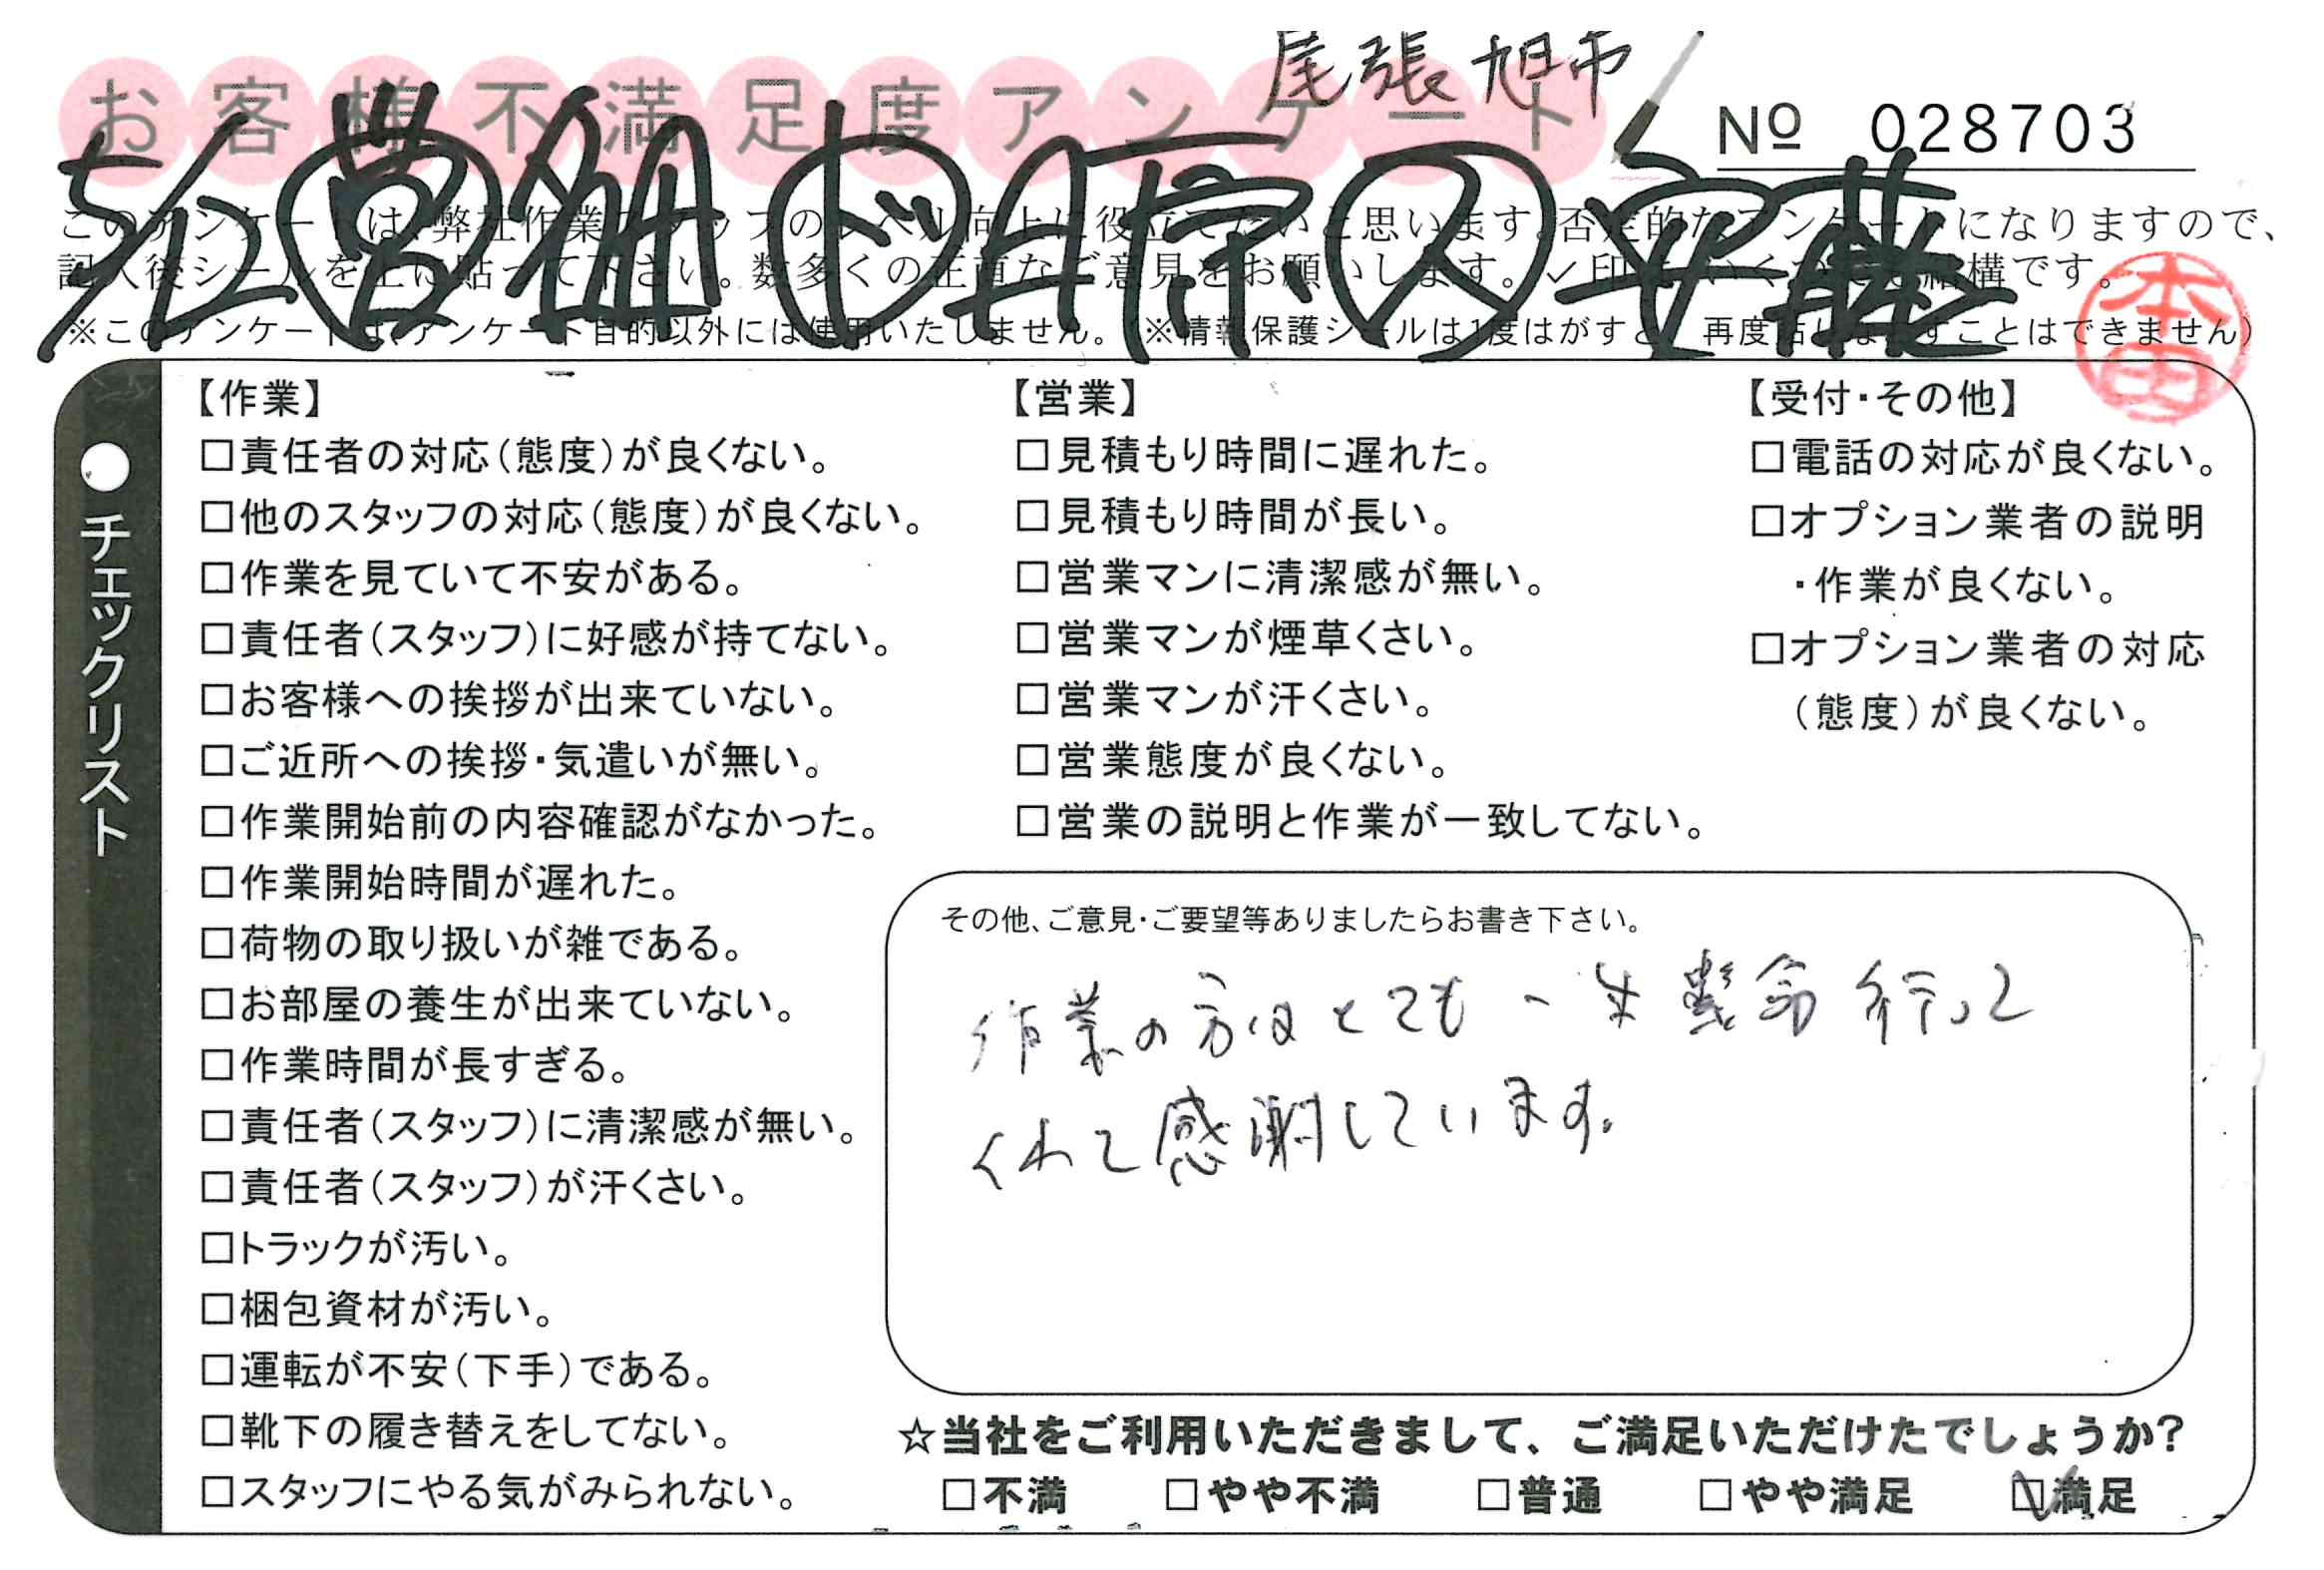 尾張旭市
お客様不満足度アンケート
№ 028703
5/2 営 ド スス 安藤
このアンケートは、弊社作業スタッフのレベル向上に役立てたいと思います。否定的なアンケートになりますので、
記入後シールを上に貼って下さい。数多くの正直なご意見をお願いします。✓印はいくつでも結構です。
※このアンケートは、アンケート目的以外には使用いたしません。(※情報保護シールは1度はがすと、再度貼りなおすことはできません)
本田
●チェックリスト
【作業】
□責任者の対応(態度)が良くない。
□他のスタッフの対応(態度)が良くない。
□作業を見ていて不安がある。
□責任者(スタッフ)に好感が持てない。
□お客様への挨拶が出来ていない。
□ご近所への挨拶・気遣いが無い。
□作業開始前の内容確認がなかった。
□作業開始時間が遅れた。
□荷物の取り扱いが雑である。
□お部屋の養生が出来ていない。
□作業時間が長すぎる。
□責任者(スタッフ)に清潔感が無い。
□責任者(スタッフ)が汗くさい。
□トラックが汚い。
□梱包資材が汚い。
□運転が不安(下手)である。
□靴下の履き替えをしてない。
□スタッフにやる気がみられない。
【営業】
□見積もり時間に遅れた。
□見積もり時間が長い。
□営業マンに清潔感が無い。
□営業マンが煙草くさい。
□営業マンが汗くさい。
□営業態度が良くない。
□営業の説明と作業が一致してない。
【受付・その他】
□電話の対応が良くない。
□オプション業者の説明
・作業が良くない。
□オプション業者の対応
(態度)が良くない。
その他、ご意見・ご要望等ありましたらお書き下さい。
作業の方はとても一生懸命行って
くれて感謝しています。
☆当社をご利用いただきまして、ご満足いただけたでしょうか?
□不満 □やや不満 □普通 □やや満足 ☑満足